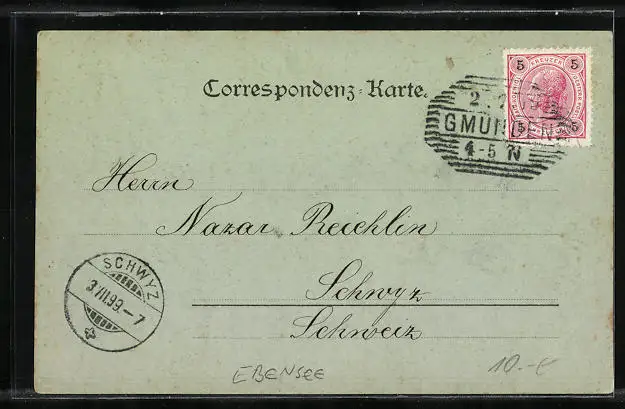 Correspondenz-Karte.
5 KREUZER 5
5 5
2. 7
GMUNDEN
4-5 N
Herrn
Nazar Reichlin
Schwyz
Schweiz
SCHWYZ
99.-7
EBENSEE
10.-€